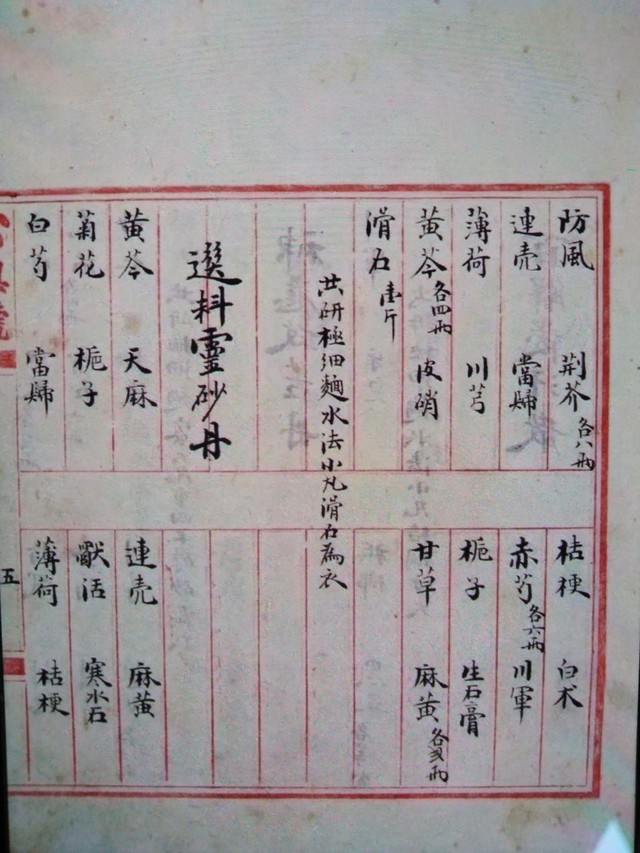 防風 荆芥各八兩 桔梗 白术
連壳 當歸 赤芍各六兩 川軍
薄荷 川芎 梔子 生石膏
黃芩各四兩 皮硝 甘草 麻黃各兩
滑石壹斤
共研極细麵水法小丸滑石為衣
選料靈砂丹
黃芩 天麻 連壳 麻黃
菊花 梔子 獻活 寒水石
白芍 當歸 薄荷 桔梗
五